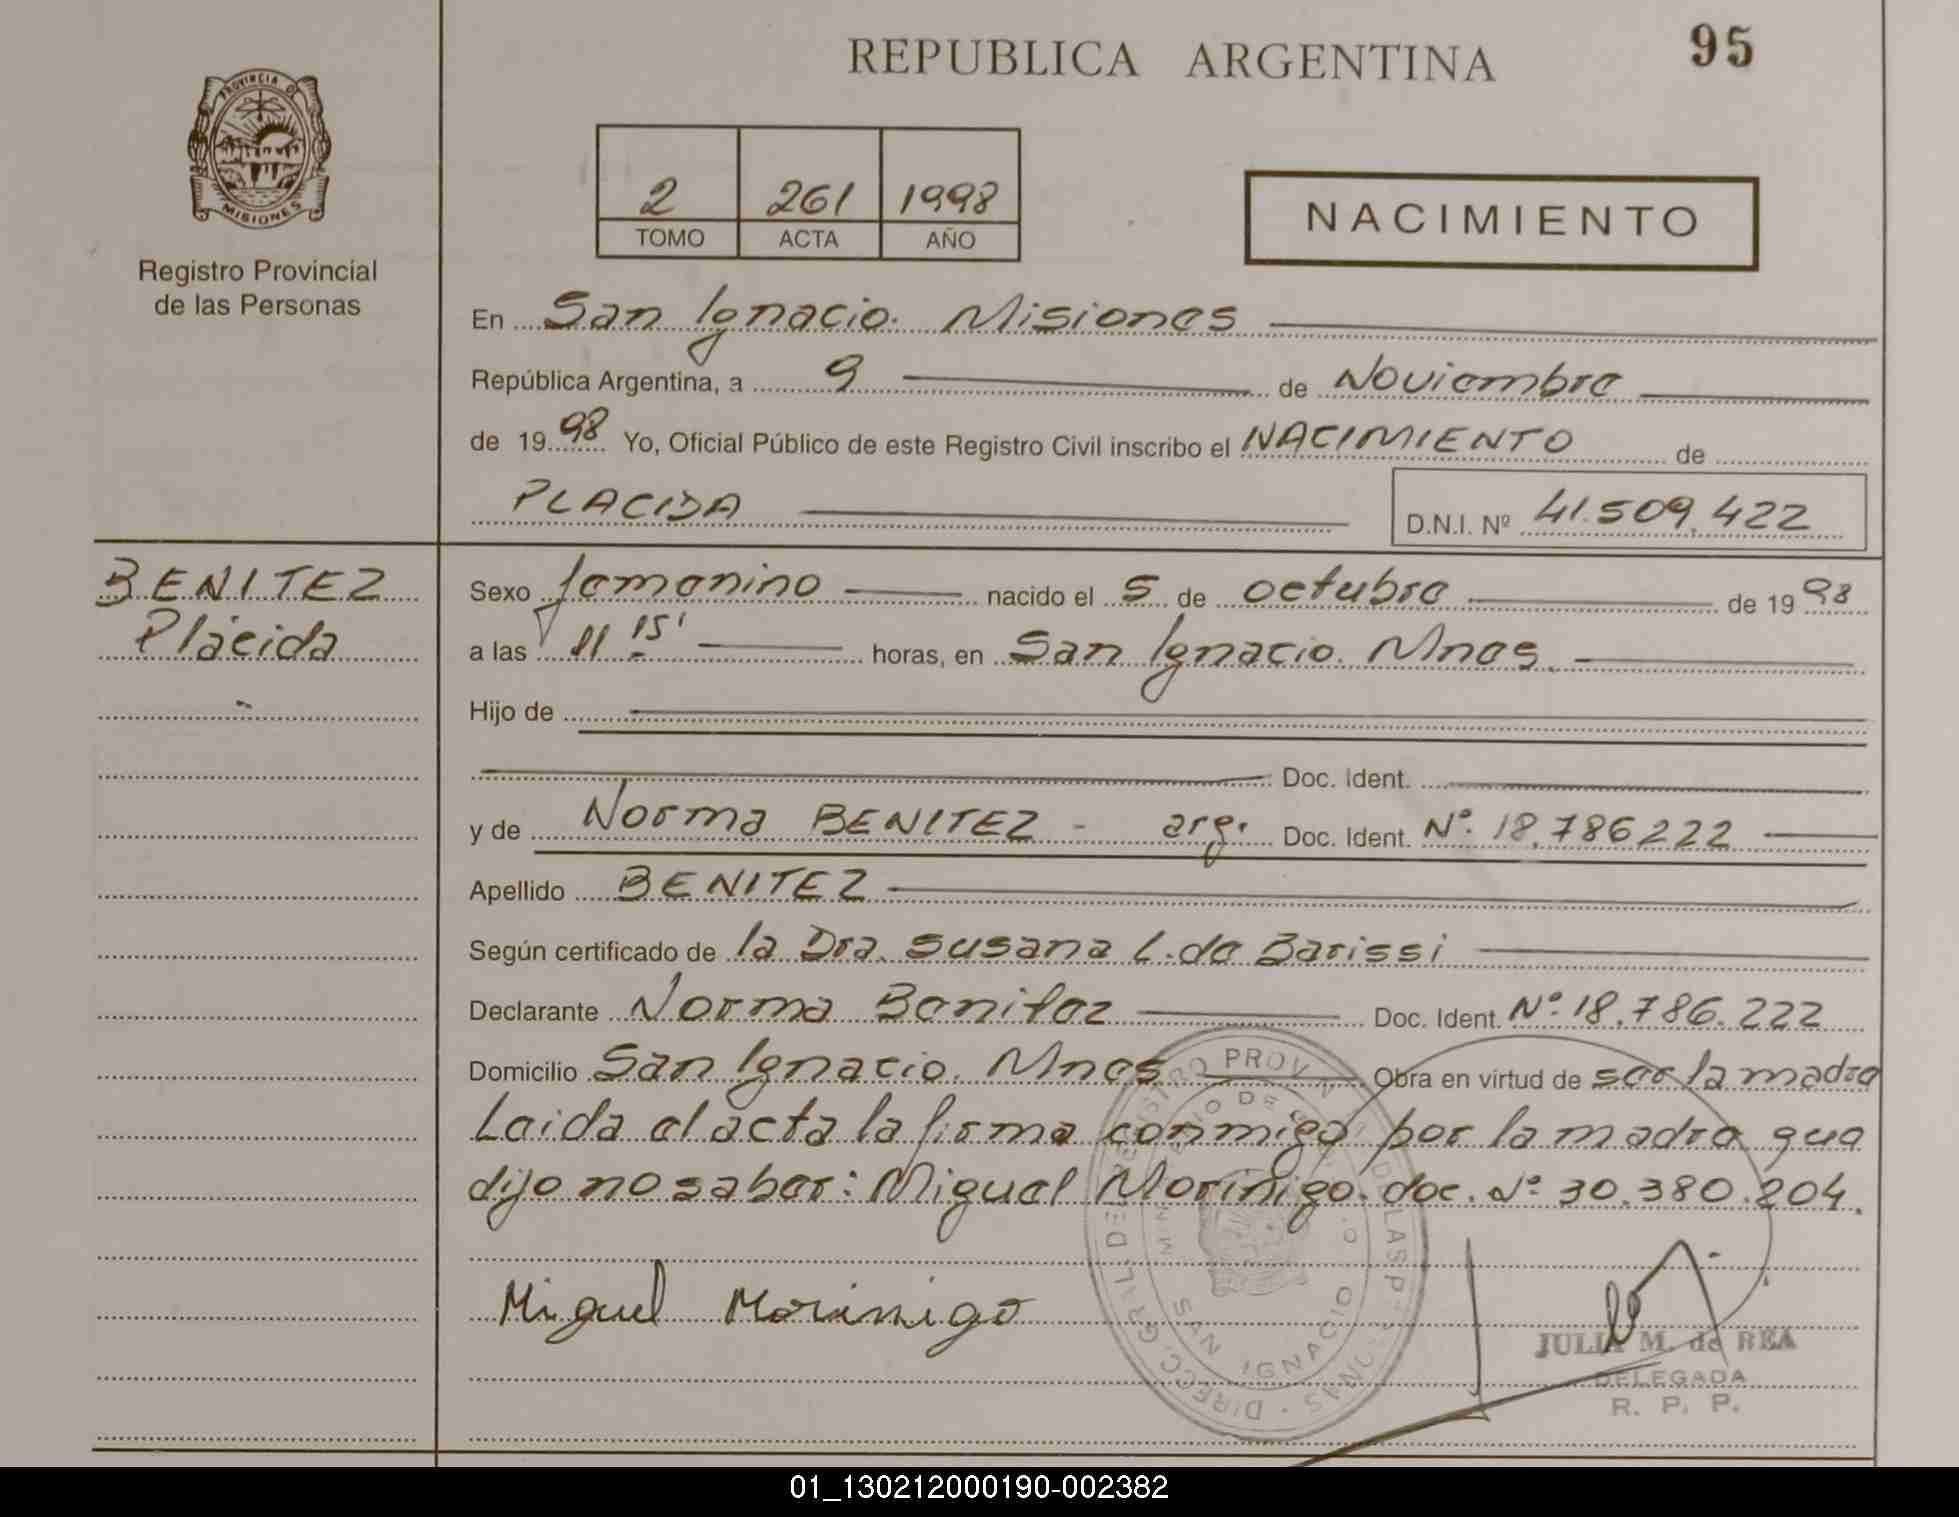 REPUBLICA ARGENTINA
95
PROVINCIA D
MISIONES
Registro Provincial
de las Personas
2 261 1998
TOMO ACTA AÑO
NACIMIENTO
En San Ignacio. Misiones
República Argentina, a 9 de Noviembre
de 1998 Yo, Oficial Público de este Registro Civil inscribo el NACIMIENTO de
PLACIDA D.N.I. Nº 41.509.422
BENITEZ
Plácida
Sexo femenino nacido el 5 de octubre de 1998
a las 11 15' horas, en San Ignacio. Mnes.
Hijo de
Doc. Ident.
y de Norma BENITEZ - arg. Doc. Ident. Nº. 18.786222
Apellido BENITEZ
Según certificado de la Dra. Susana L. de Barissi
Declarante Norma Benitez Doc. Ident. Nº. 18.786.222
Domicilio San Ignacio. Mnes Obra en virtud de ser la madre
Leida el acta la firma conmigo por la madre que
dijo no saber: Miguel Moriñigo. doc. Nº 30.380.204.
Miguel Morinigo
SAN IGNACIO
JULIA M. de REA
DELEGADA
R. P. P.
01_130212000190-002382